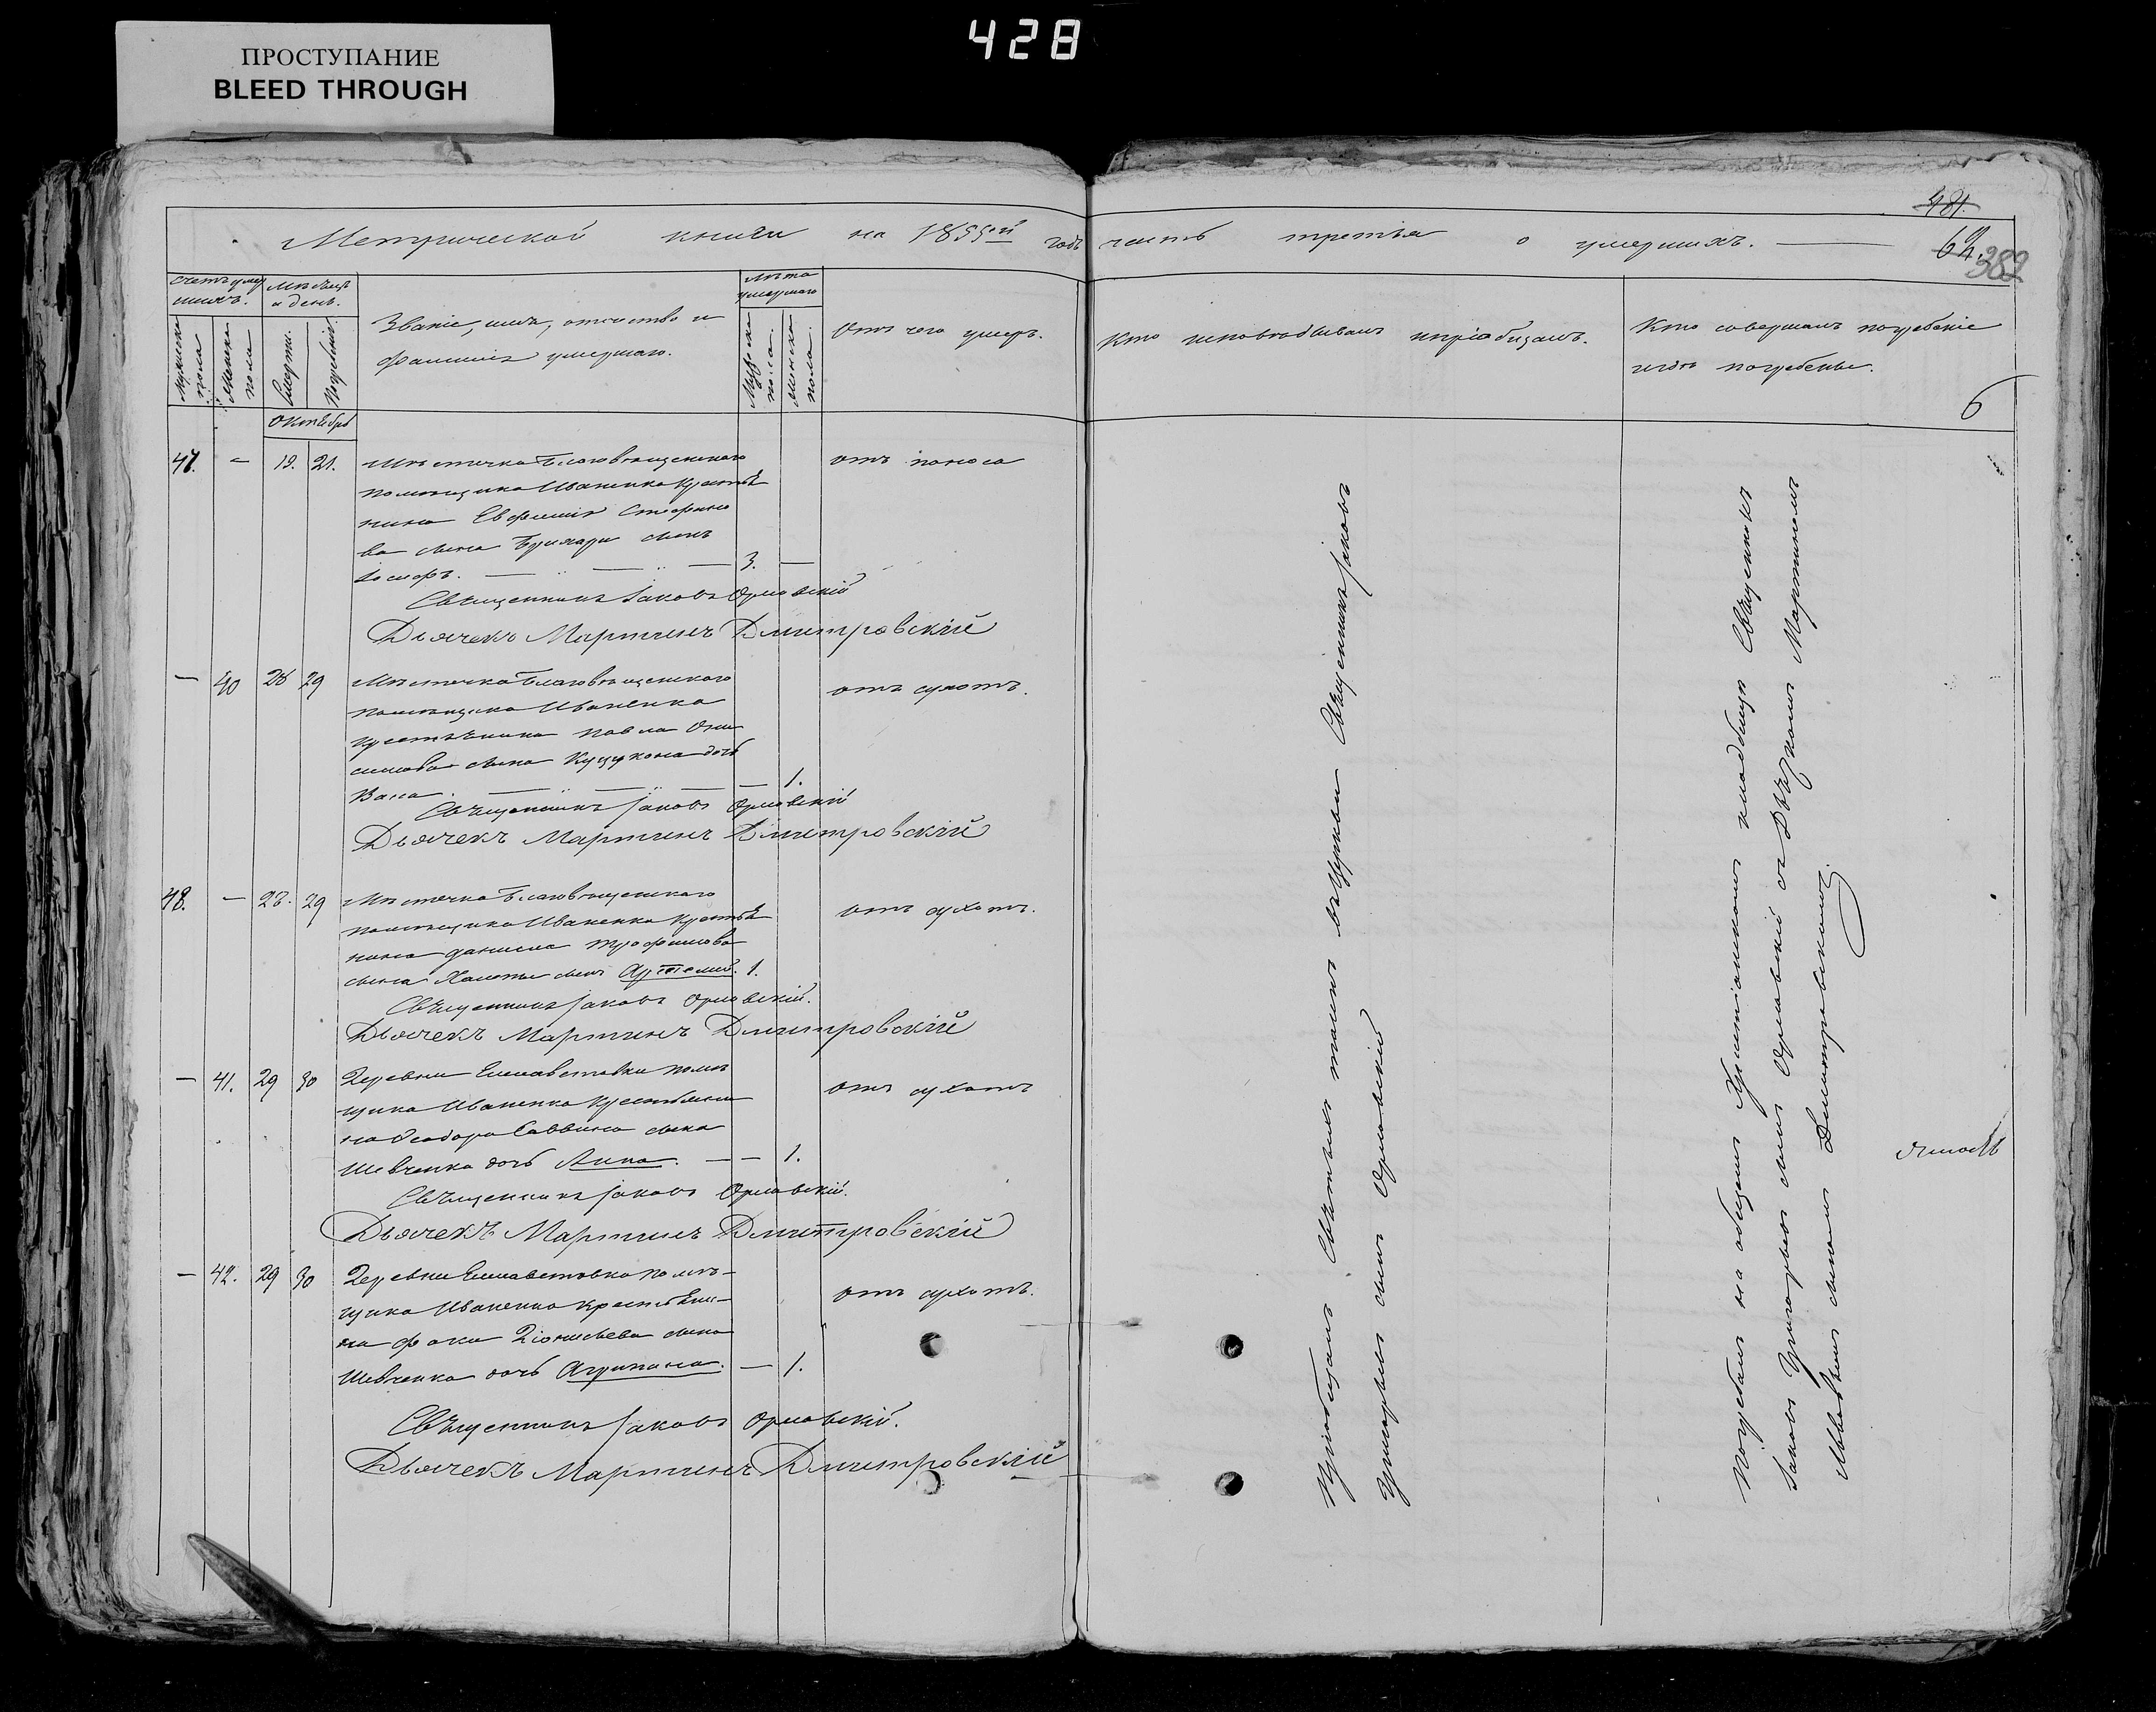 428
ПРОСТУПАНИЕ
BLEED THROUGH
481.
62.
382
Метрической книги на 1855ой годъ часть третья о умершихъ.
Счетъ умер
шихъ.
Мѣсяцъ
и день.
Мужеска
пола
Женска
пола
Смерти.
Погребенія.
Званіе, имя, отчество и
фамилія умершаго.
Лѣта
умершаго
Мужеска
пола.
Женска
пола.
Отъ чего умеръ.
Кто исповѣдывалъ и пріобщалъ.
Кто совершалъ погребеніе
и гдѣ погребены.
6
Октябрь
47. - 19. 21. Мѣстечка Благовѣщенскаго
помѣщика Иваненка крестья
нина Евфимія Стефано
ва сына сынъ
Іосифъ. 3. —
отъ поноса
Священникъ Іаковъ Орловскій
Дьячекъ Мартинъ Дмитровскій
— 40 28 29 Мѣстечка Благовѣщенскаго
помѣщика Иваненка
крестьянина Павла Они
симова сына дочь
— 1.
отъ сухотъ.
Священникъ Іаковъ Орловскій
Дьячекъ Мартинъ Дмитровскій
48. — 28. 29 Мѣстечка Благовѣщенскаго
помѣщика Иваненка крестья
нина Даніила Трофимова
сына сынъ Артемій. 1.
отъ сухотъ.
Священникъ Іаковъ Орловскій.
Дьячекъ Мартинъ Дмитровскій
— 41. 29 30 Деревни Елисаветовки помѣ
щика Иваненка крестьяни
на Феодора Саввина сына
Шевченка дочь Анна. — — 1.
отъ сухотъ
Священникъ Іаковъ Орловскій.
Дьячекъ Мартинъ Дмитровскій
— 42. 29 30 Деревни Елисаветовки помѣ-
щика Иваненка крестьяни-
на Фоки Діонисіева сына
Шевченка дочь Агрипина. — 1.
отъ сухотъ.
Священникъ Іаковъ Орловскій.
Дьячекъ Мартинъ Дмитровскій
Пріобщалъ Святыхъ таинъ въ Церкви Священникъ Іаковъ
Григорьевъ сынъ Орловскій
Погребалъ на общемъ Христіанскомъ кладбищѣ Священникъ
Іаковъ Григорьевъ сынъ Орловскій съ Дьячкомъ Мартиномъ
сыномъ Дмитровскимъ.